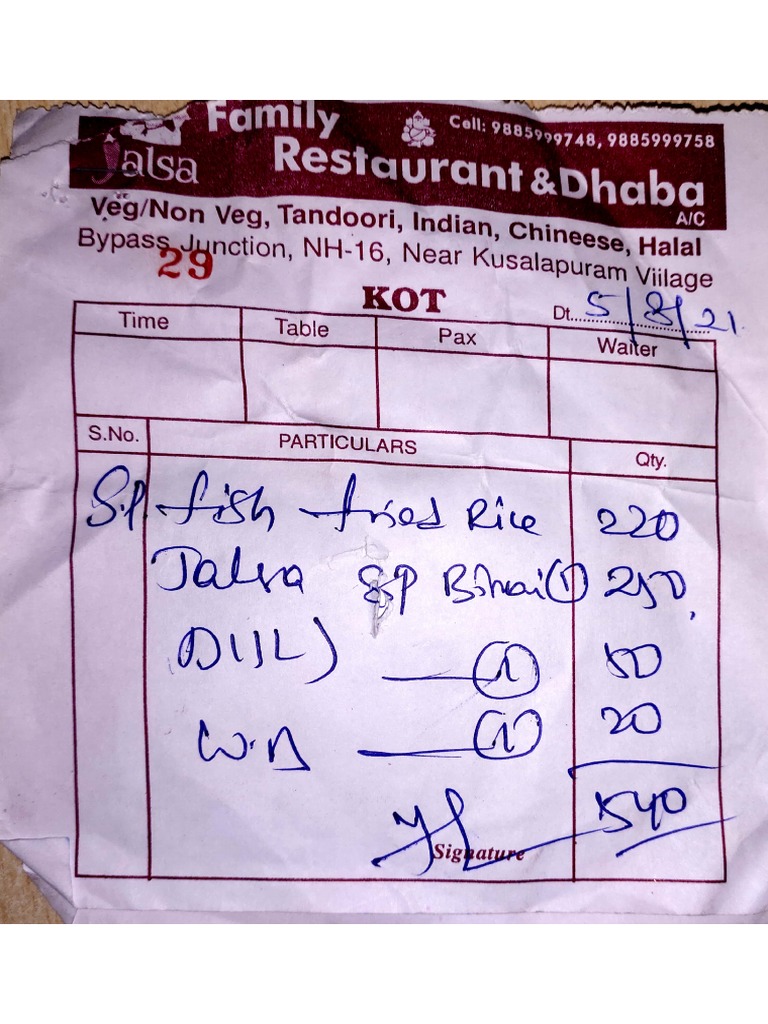 Jalsa Family Restaurant & Dhaba A/C
Cell: 9885999748, 9885999758
Veg/Non Veg, Tandoori, Indian, Chineese, Halal
Bypass Junction, NH-16, Near Kusalapuram Viilage
29
KOT
Dt. 5/8/21.
Time Table Pax Waiter
S.No. PARTICULARS Qty.
S.P. fish fried Rice 220
Jalsa SP Birai (1) 250
D(1L) (1) 50
W.B (1) 20
540
Signature